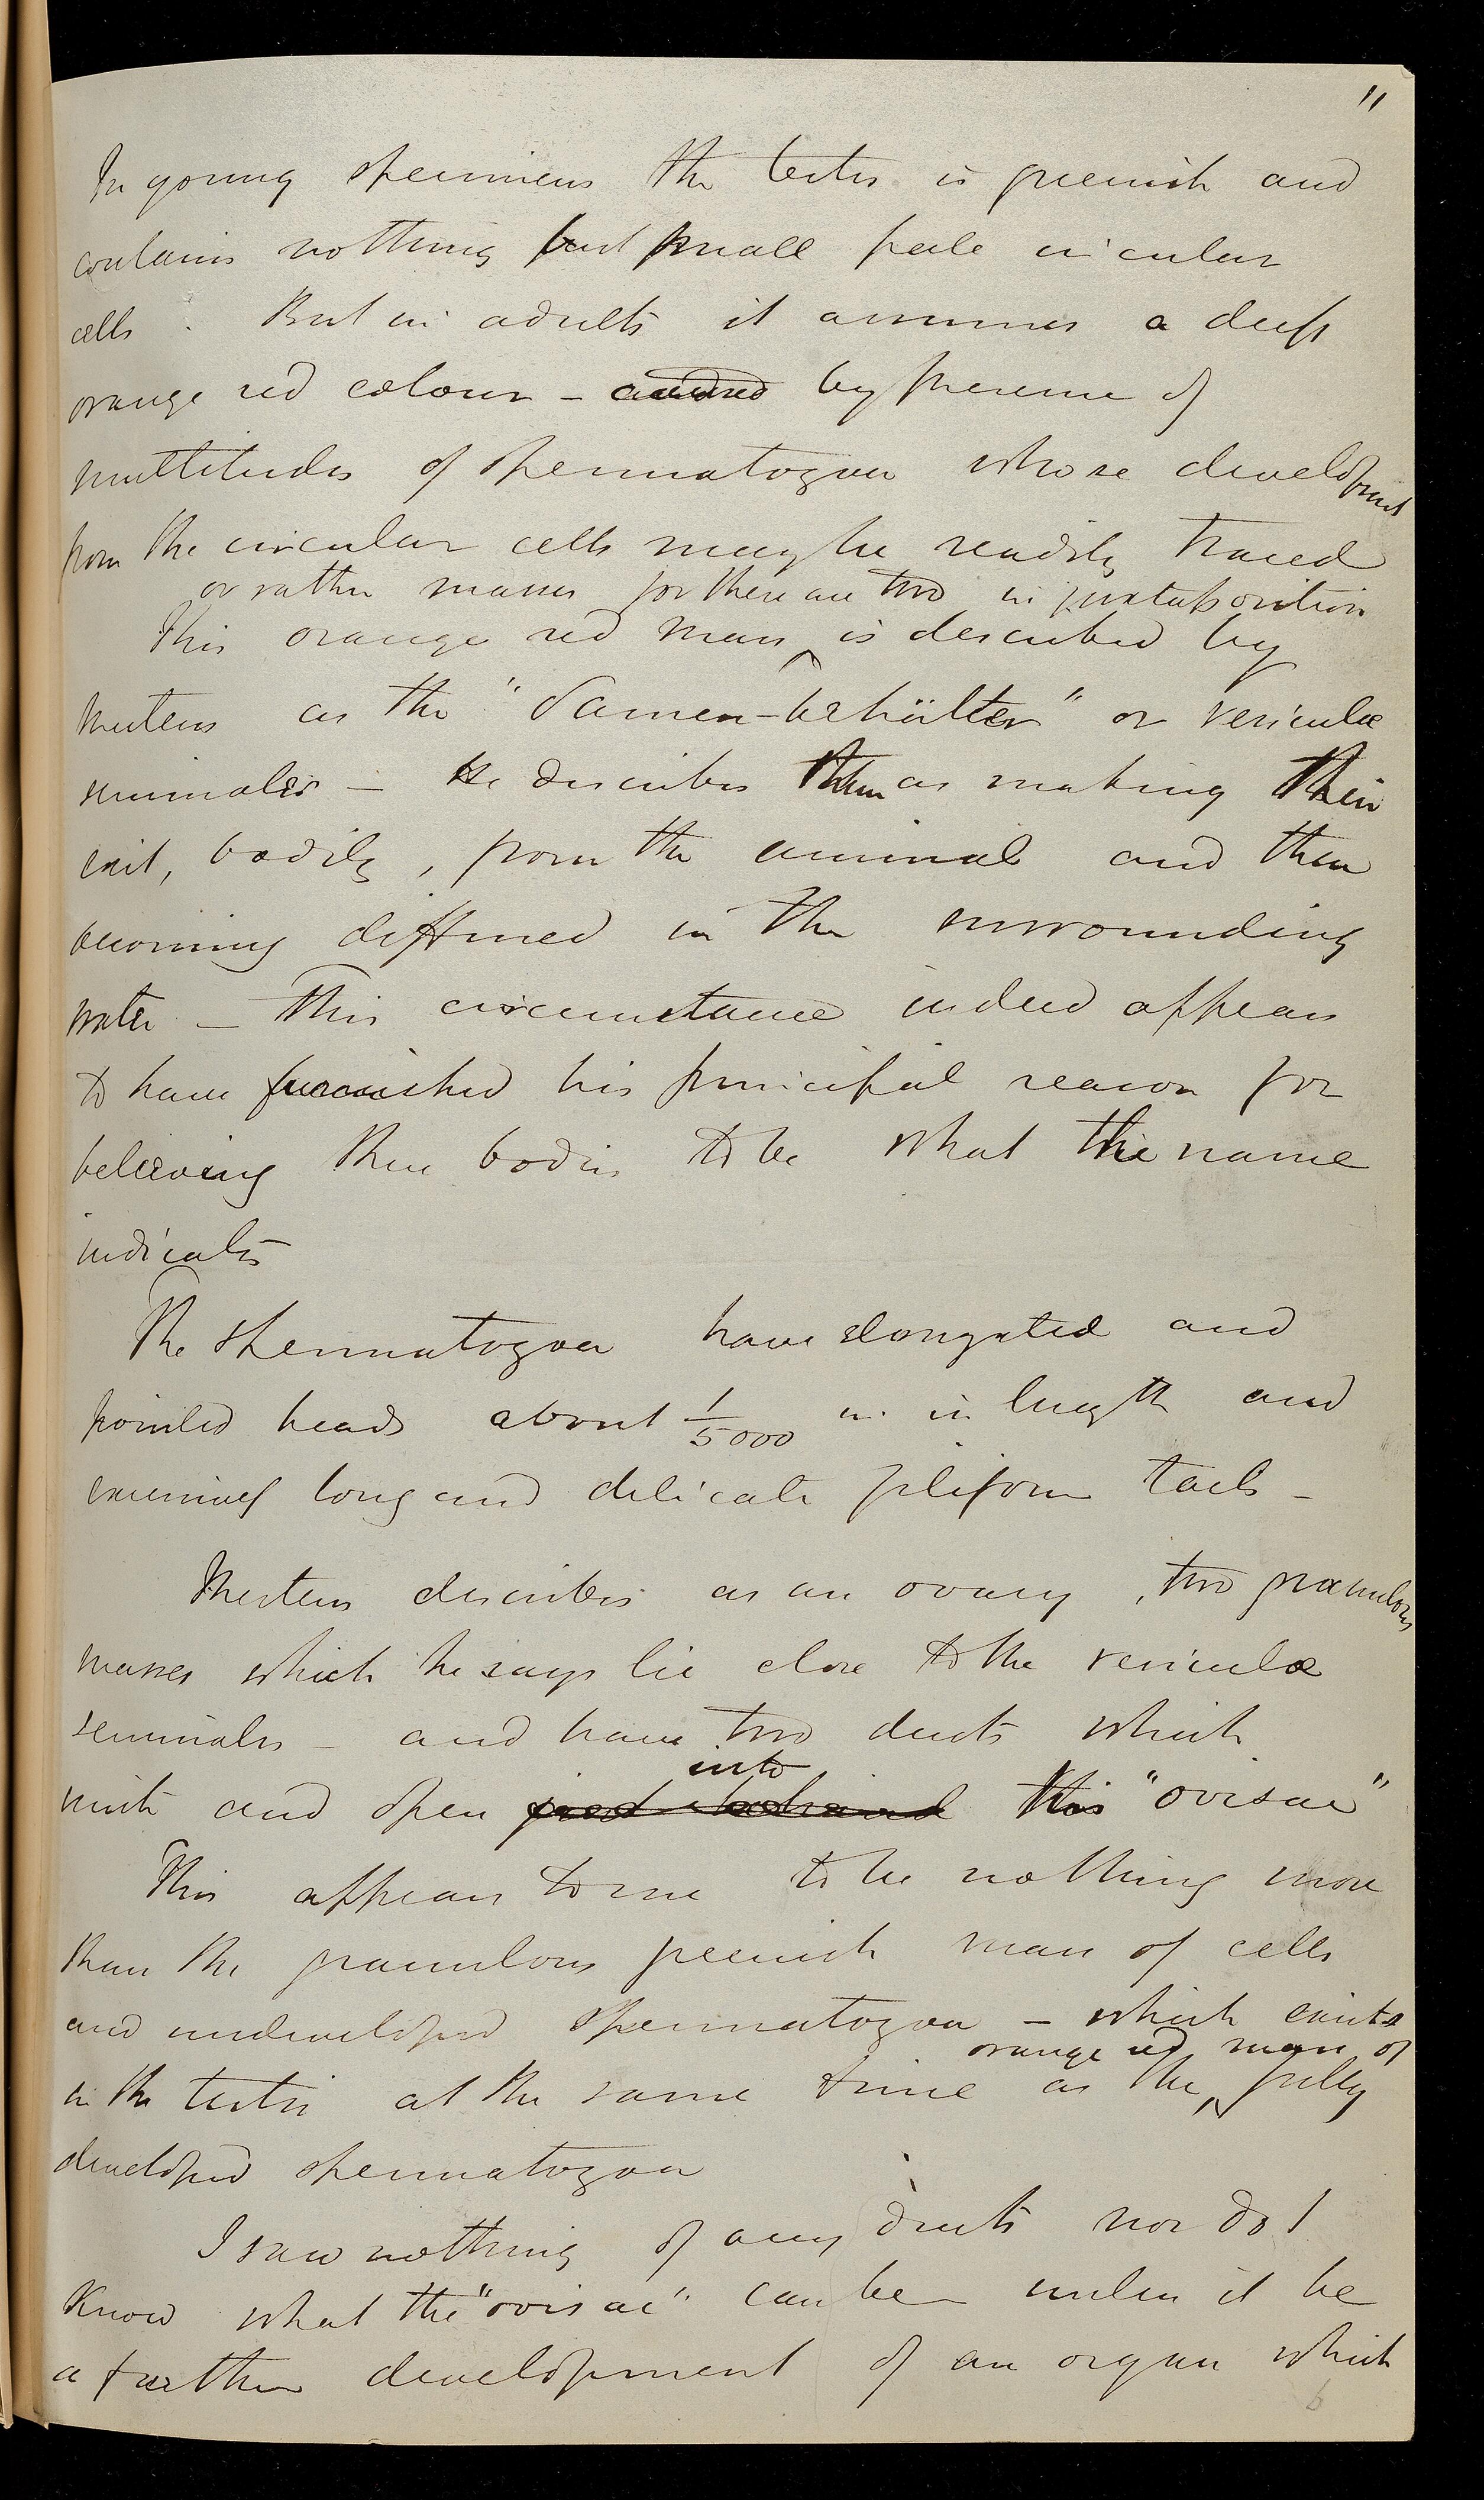 11
In young specimens the testis is greenish and
contains nothing but small pale circular
cells. But in adults it assumes a deep
orange red colour – caused by presence of
multitudes of spermatozoa whose development
from the circular cells may be readily traced
or rather masses for there are two in juxtaposition
This orange red mass ‸ is described by
Mertens as the "Samen-behälter" or vesiculæ
seminales – He describes them as making their
exit, bodily, from the animal and then
becoming diffused in the surrounding
water – This circumstance indeed appears
to have furnished his principal reason for
believing these bodies to be what the name
indicates
The spermatozoa have elongated and
pointed heads about 1/5000 in. in length and
excessively long and delicate filiform tails –
Mertens describes as an ovary, two granulous
masses which he says lie close to the vesiculæ
seminales – and have two ducts which
into
unite and open just behind this "ovisac"
This appears to me to be nothing more
than the granulous greenish mass of cells
and undeveloped spermatozoa – which exists
orange red mass of
in the testis at the same time as the ‸ fully
developed spermatozoa
I saw nothing of any ducts nor do I
know what the "ovisac" can be unless it be
a further development of an organ which